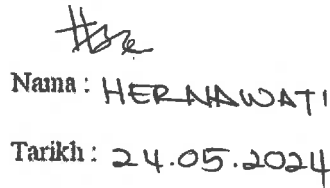 Nama : HERNAWATI
Tarikh : 24.05.2024